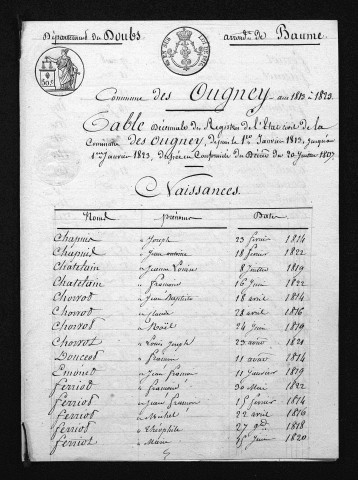 Département du Doubs arrondt. de Baume
Commune des Ougney ans 1813 à 1823.
Table Décennale des Registres de l'Etat civil de la
Commune des Ougney, depuis le 1er Janvier 1813, jusqu'au
1er Janvier 1823, dressée en Conformité du Décret du 20 Juillet 1807.
Naissances.
Noms prénoms Dates
Chapuis Joseph 23 février 1814
Chapuis Jean antoine 18 février 1822
Chatelain Jeanne Louise 8 Juillet 1819
Chatelain françois 16 Juin 1822
Chorrot Jean Baptiste 18 avril 1814
Chorrot Claude 28 avril 1816
Chorrot Noël 24 Juin 1819
Chorrot Louis Joseph 23 août 1821
Doucet 11 août 1814
Emonet Jean françois 11 Janvier 1819
ferriot françois 30 Mai 1822
ferriot Jean françois 15 février 1814
ferriot Michel 22 avril 1816
ferriot théophile 27 9bre 1818
ferriot Marie Juin 1820